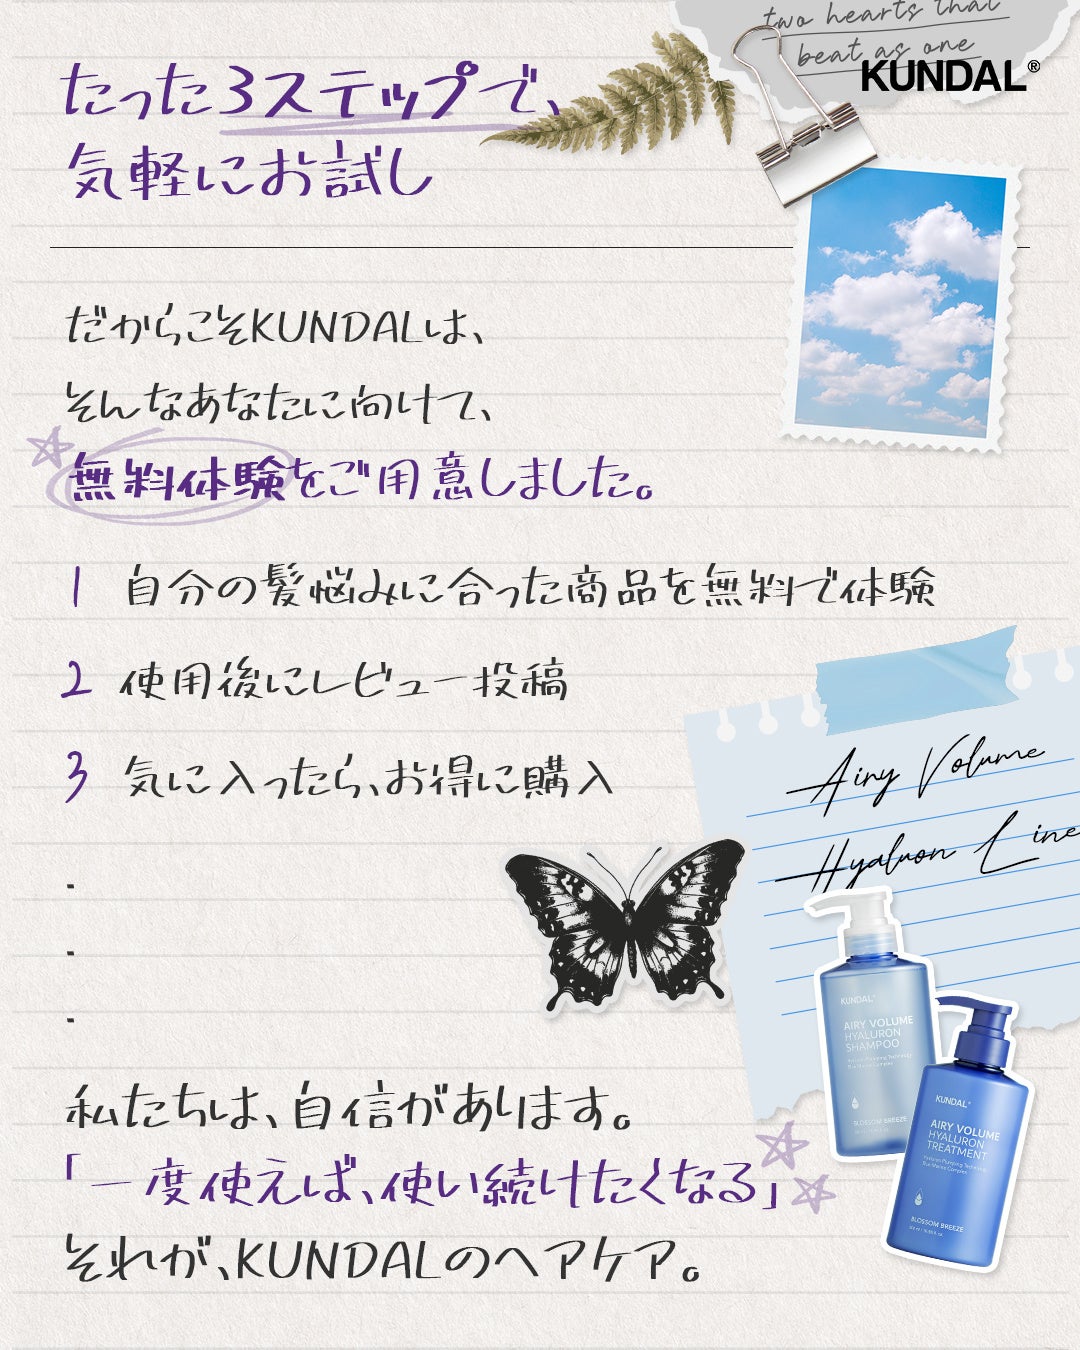 two hearts that
beat as one
KUNDAL®
たった3ステップで、
気軽にお試し
だからこそKUNDALは、
そんなあなたに向けて、
無料体験をご用意しました。
1 自分の髪悩みに合った商品を無料で体験
2 使用後にレビュー投稿
3 気に入ったら、お得に購入
Airy Volume
Hyaluron Line
-
-
-
KUNDAL®
AIRY VOLUME
HYALURON
SHAMPOO
BLOSSOM BREEZE
KUNDAL®
AIRY VOLUME
HYALURON
TREATMENT
BLOSSOM BREEZE
私たちは、自信があります。
「一度使えば、使い続けたくなる」
それが、KUNDALのヘアケア。